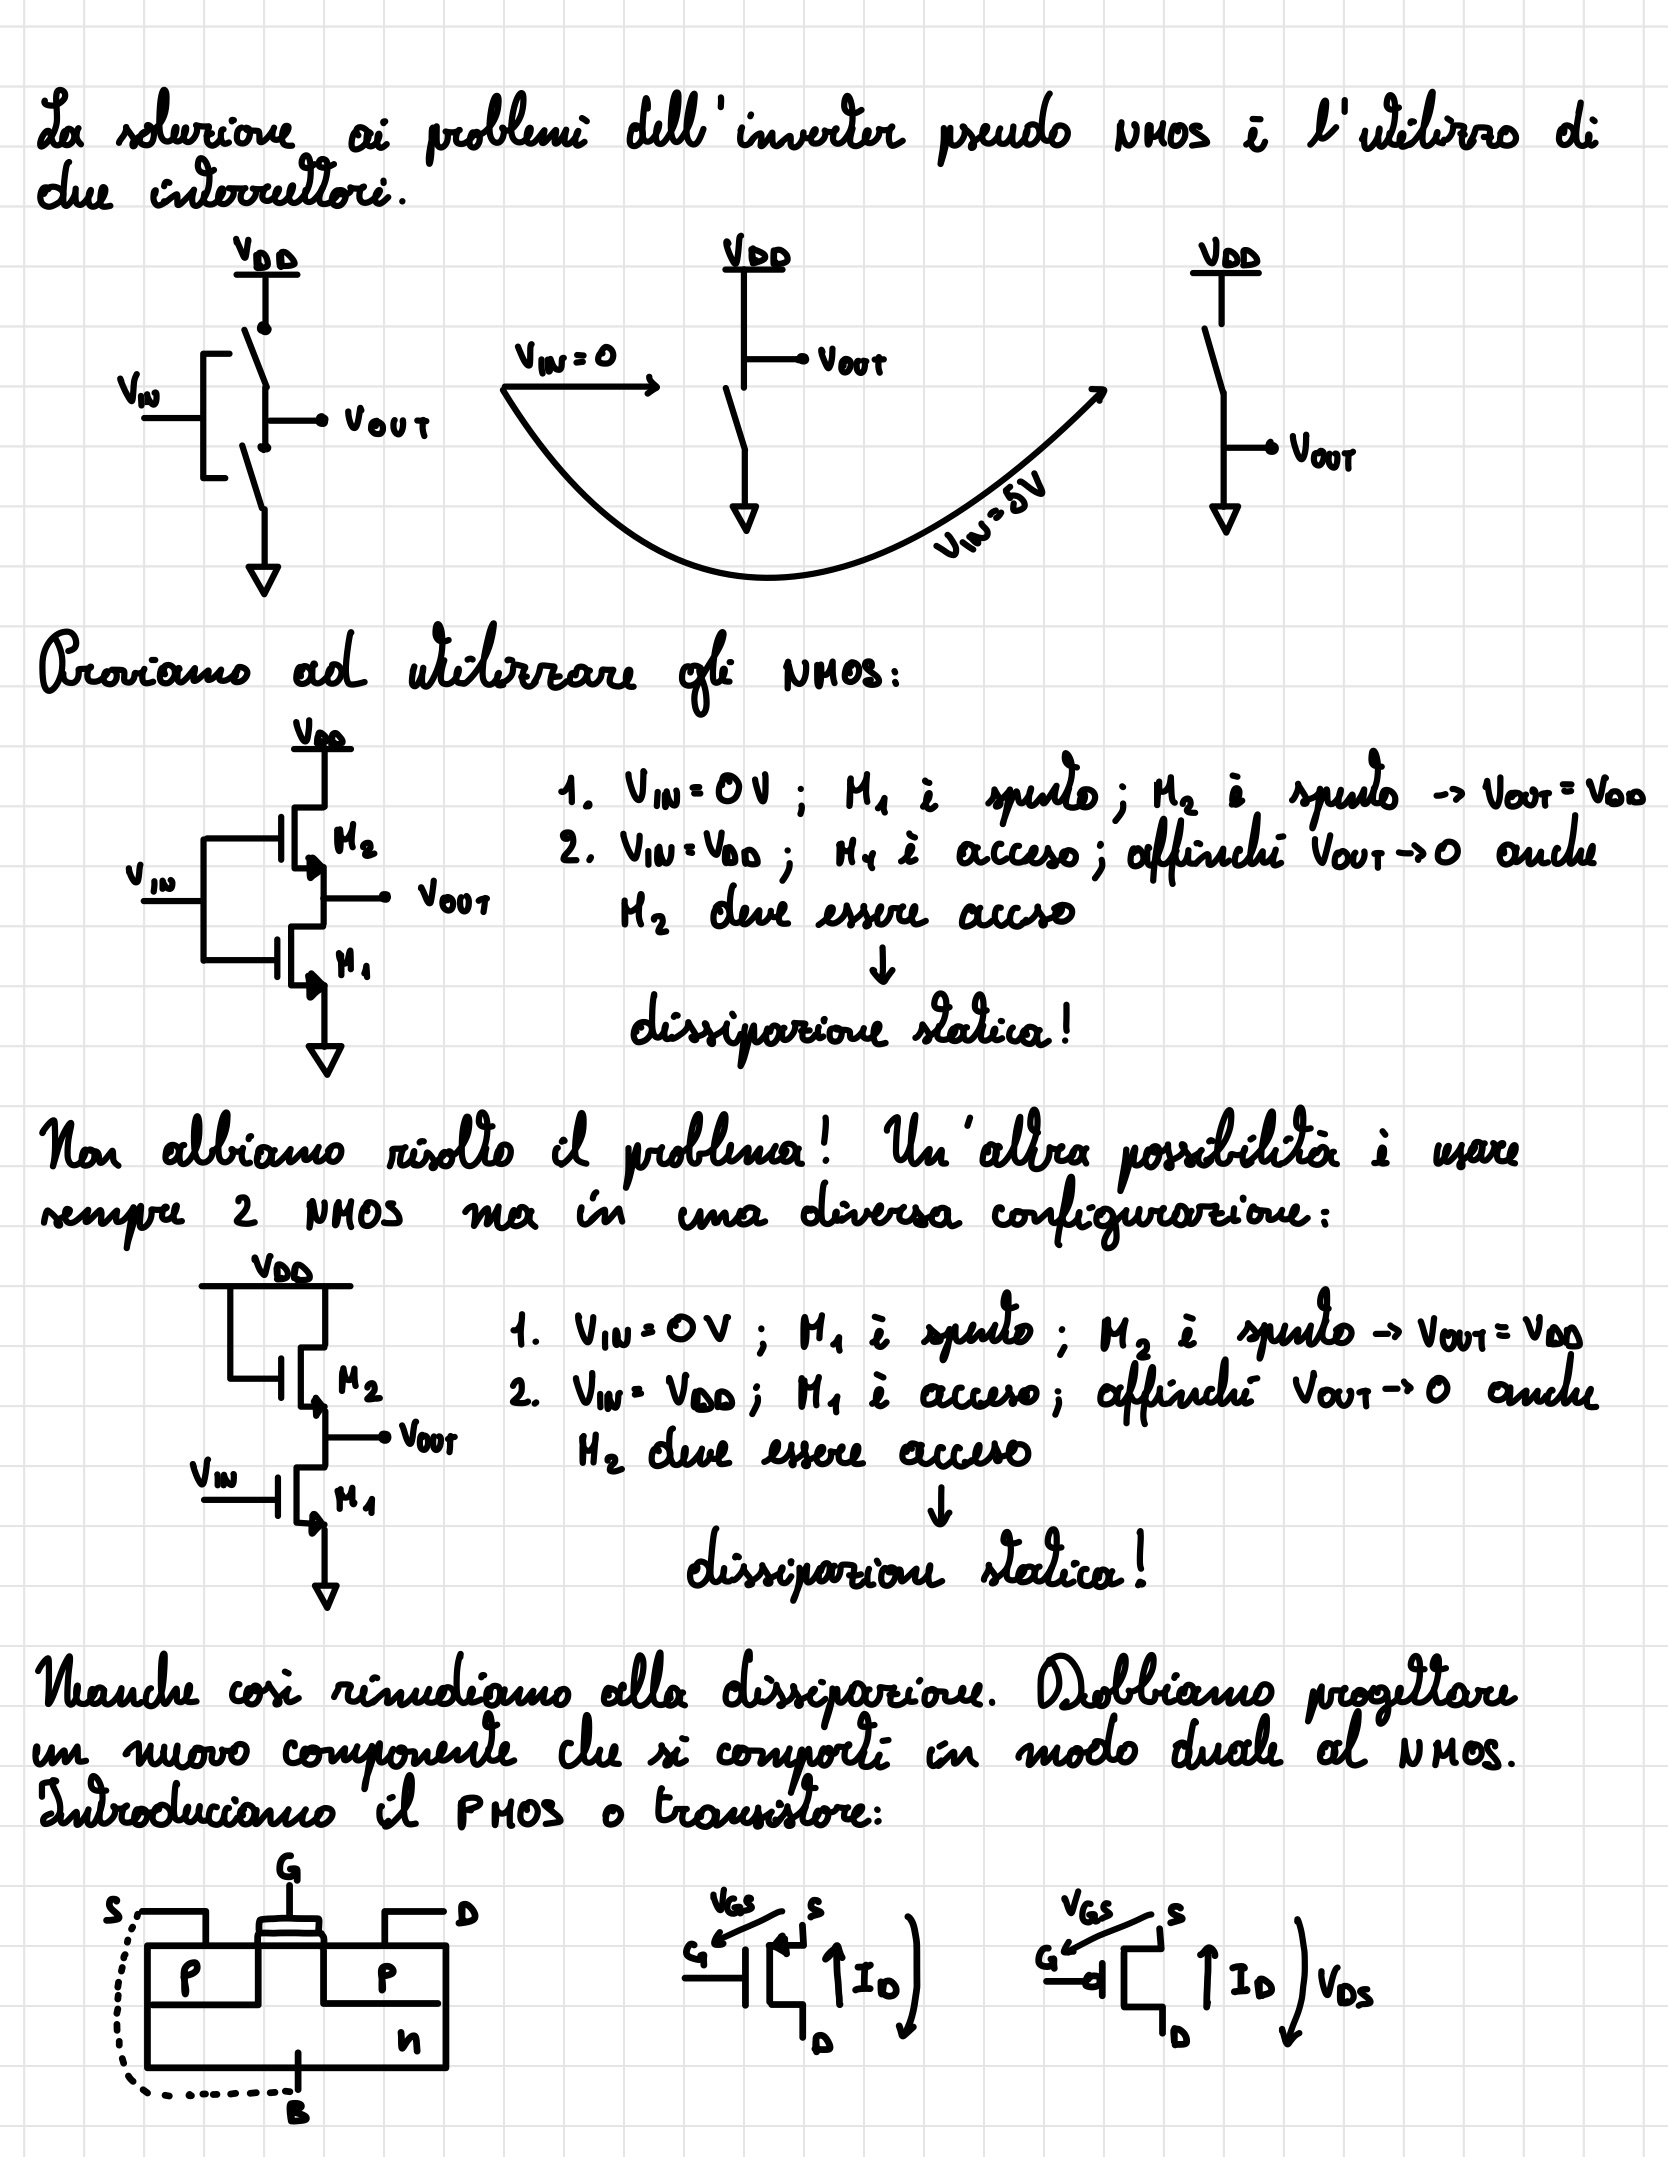 La soluzione ai problemi dell'inverter pseudo NMOS è l'utilizzo di
due interruttori.
VDD
VDD
VDD
VIN
VOUT
VIN=0
VOUT
VIN=5V
VOUT
Proviamo ad utilizzare gli NMOS:
VDD
M2
VIN
VOUT
M1
1. VIN=0V ; M1 è spento ; M2 è spento -> VOUT=VDD
2. VIN=VDD ; M1 è acceso ; affinché VOUT->0 anche
M2 deve essere acceso
↓
dissipazione statica!
Non abbiamo risolto il problema! Un'altra possibilità è usare
sempre 2 NMOS ma in una diversa configurazione:
VDD
M2
VOUT
VIN
M1
1. VIN=0V ; M1 è spento ; M2 è spento -> VOUT=VDD
2. VIN=VDD ; M1 è acceso ; affinché VOUT->0 anche
M2 deve essere acceso
↓
dissipazione statica!
Neanche così rimediamo alla dissipazione. Dobbiamo progettare
un nuovo componente che si comporti in modo duale al NMOS.
Introduciamo il PMOS o transistore:
G
S
D
P
P
n
B
VGS
S
G
ID
D
VGS
S
G
ID
VDS
D